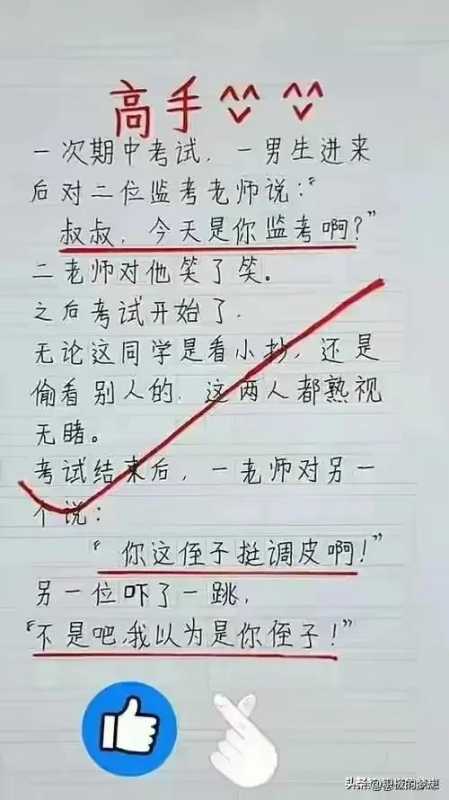 高手
一次期中考试，一男生进来
后对二位监考老师说：“
叔叔，今天是你监考啊？”
二老师对他笑了笑。
之后考试开始了．
无论这同学是看小抄，还是
偷看别人的．这两人都熟视
无睹。
考试结束后，一老师对另一
个说：
“你这侄子挺调皮啊！”
另一位吓了一跳，
“不是吧，我以为是你侄子！”